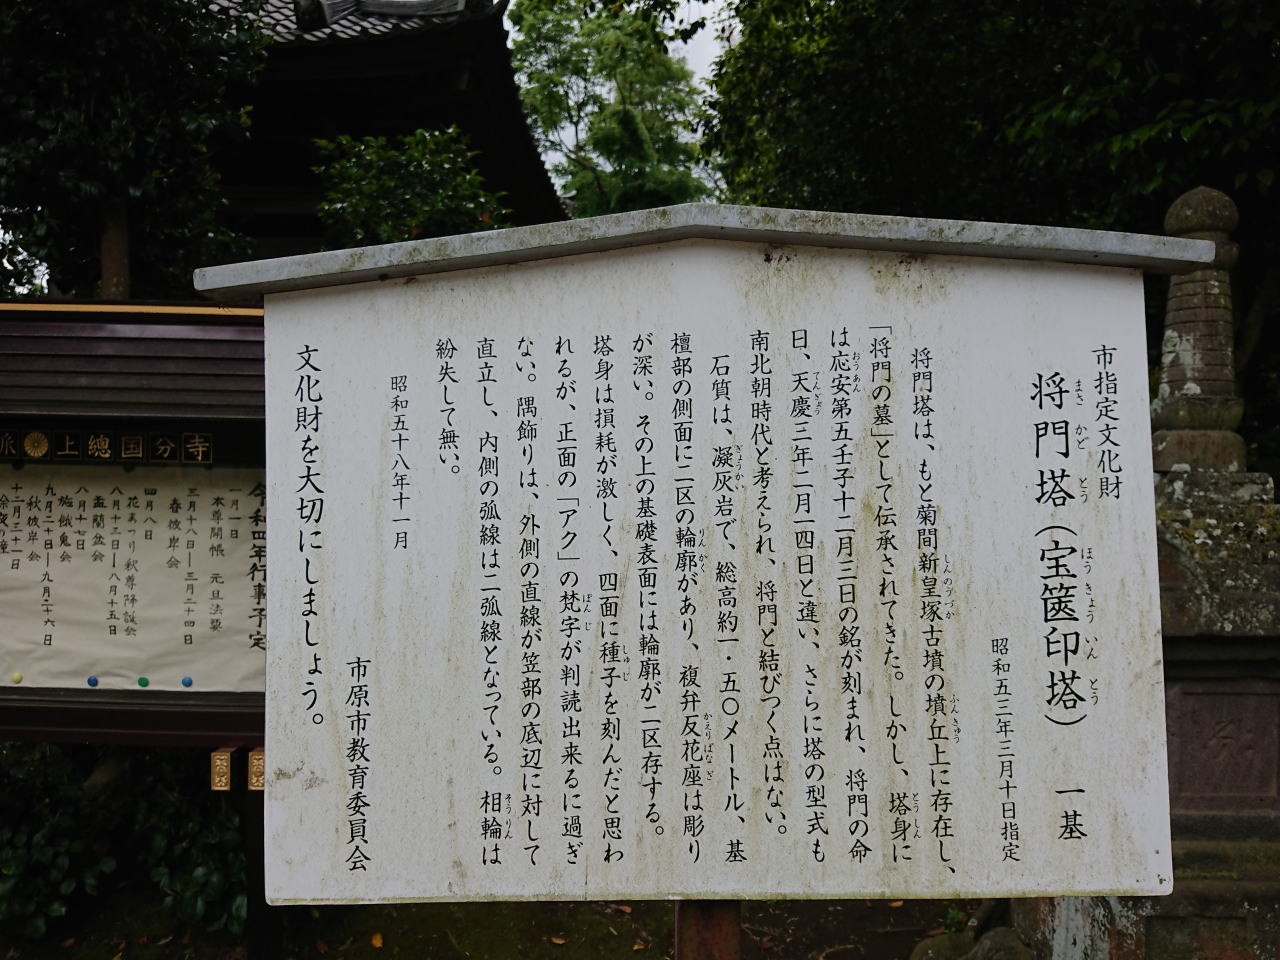 市指定文化財
将門塔（宝篋印塔）　一基
まさ かど とう ほう きょう いん とう
昭和五三年三月十日指定
将門塔は、もと菊間新皇塚古墳の墳丘上に存在し、
しんのうづか ふんきゅう
「将門の墓」として伝承されてきた。しかし、塔身に
とうしん
は応安第五壬子十二月三日の銘が刻まれ、将門の命
おうあん
日、天慶三年二月一四日と違い、さらに塔の型式も
てんぎょう
南北朝時代と考えられ、将門と結びつく点はない。
石質は、凝灰岩で、総高約一・五〇メートル、基
ぎょうかい
檀部の側面に二区の輪廓があり、複弁反花座は彫り
りんかく かえりばなざ
が深い。その上の基礎表面には輪廓が二区存する。
塔身は損耗が激しく、四面に種子を刻んだと思わ
しゅじ
れるが、正面の「アク」の梵字が判読出来るに過ぎ
ぼんじ
ない。隅飾りは、外側の直線が笠部の底辺に対して
直立し、内側の弧線は二弧線となっている。相輪は
そうりん
紛失して無い。
昭和五十八年十一月
市原市教育委員会
文化財を大切にしましょう。
派 上總国分寺
令和四年行事予定
一月一日
本尊開帳　元旦法要
三月十八日―三月二十四日
春彼岸会
四月八日
花まつり釈尊降誕会
八月十三日―八月十五日
盂蘭盆会
八月十七日
施餓鬼会
九月二十日―九月二十六日
秋彼岸会
十二月三十一日
除夜の鐘